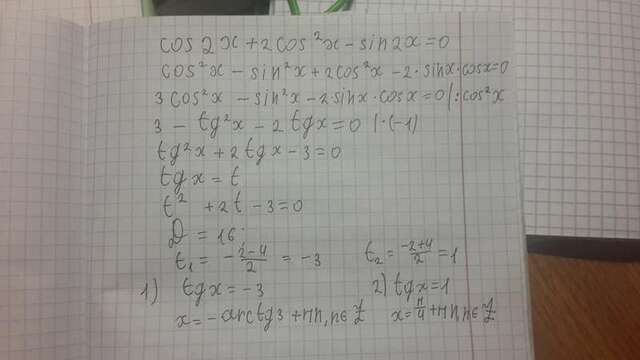 cos2x+2cos²x-sin2x=0
cos²x-sin²x+2cos²x-2·sinx·cosx=0
3cos²x-sin²x-2sinx·cosx=0|:cos²x
3-tg²x-2tgx=0 |·(-1)
tg²x+2tgx-3=0
tgx=t
t²+2t-3=0
D=16
t₁=\frac{-2-4}{2}=-3 t₂=\frac{-2+4}{2}=1
1) tgx=-3 2) tgx=1
x=-arctg3+πn,n∈Z x=\frac{π}{4}+πn,n∈Z